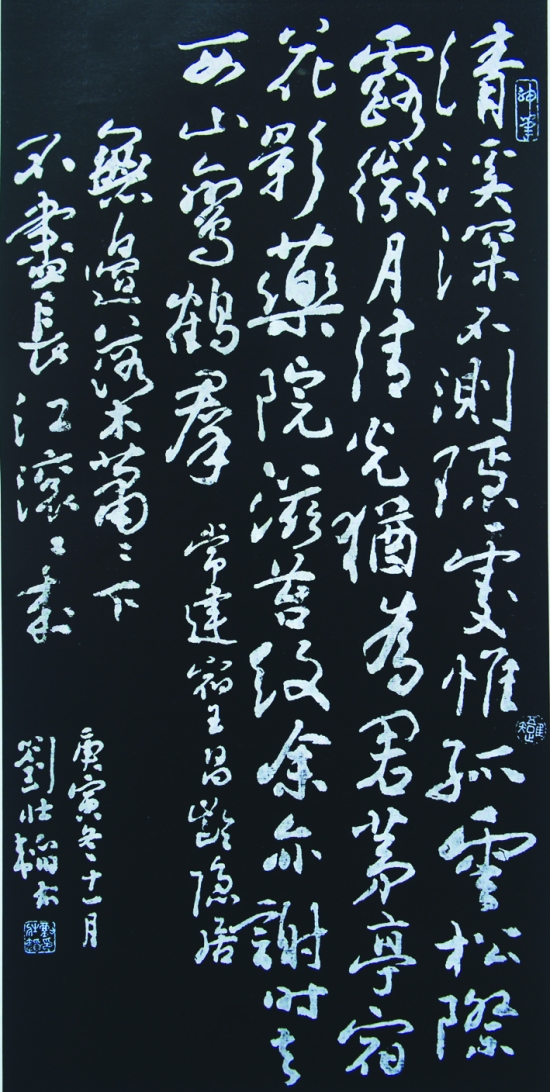 清溪深不測隱處惟孤雲松際
露微月清光猶為君茅亭宿
花影藥院滋苔紋余亦謝時去
西山鸞鶴羣
常建宿王昌齡隐居
無邊落木蕭〻下
不盡長江滾〻來
庚寅冬十一月
劉壮韜书